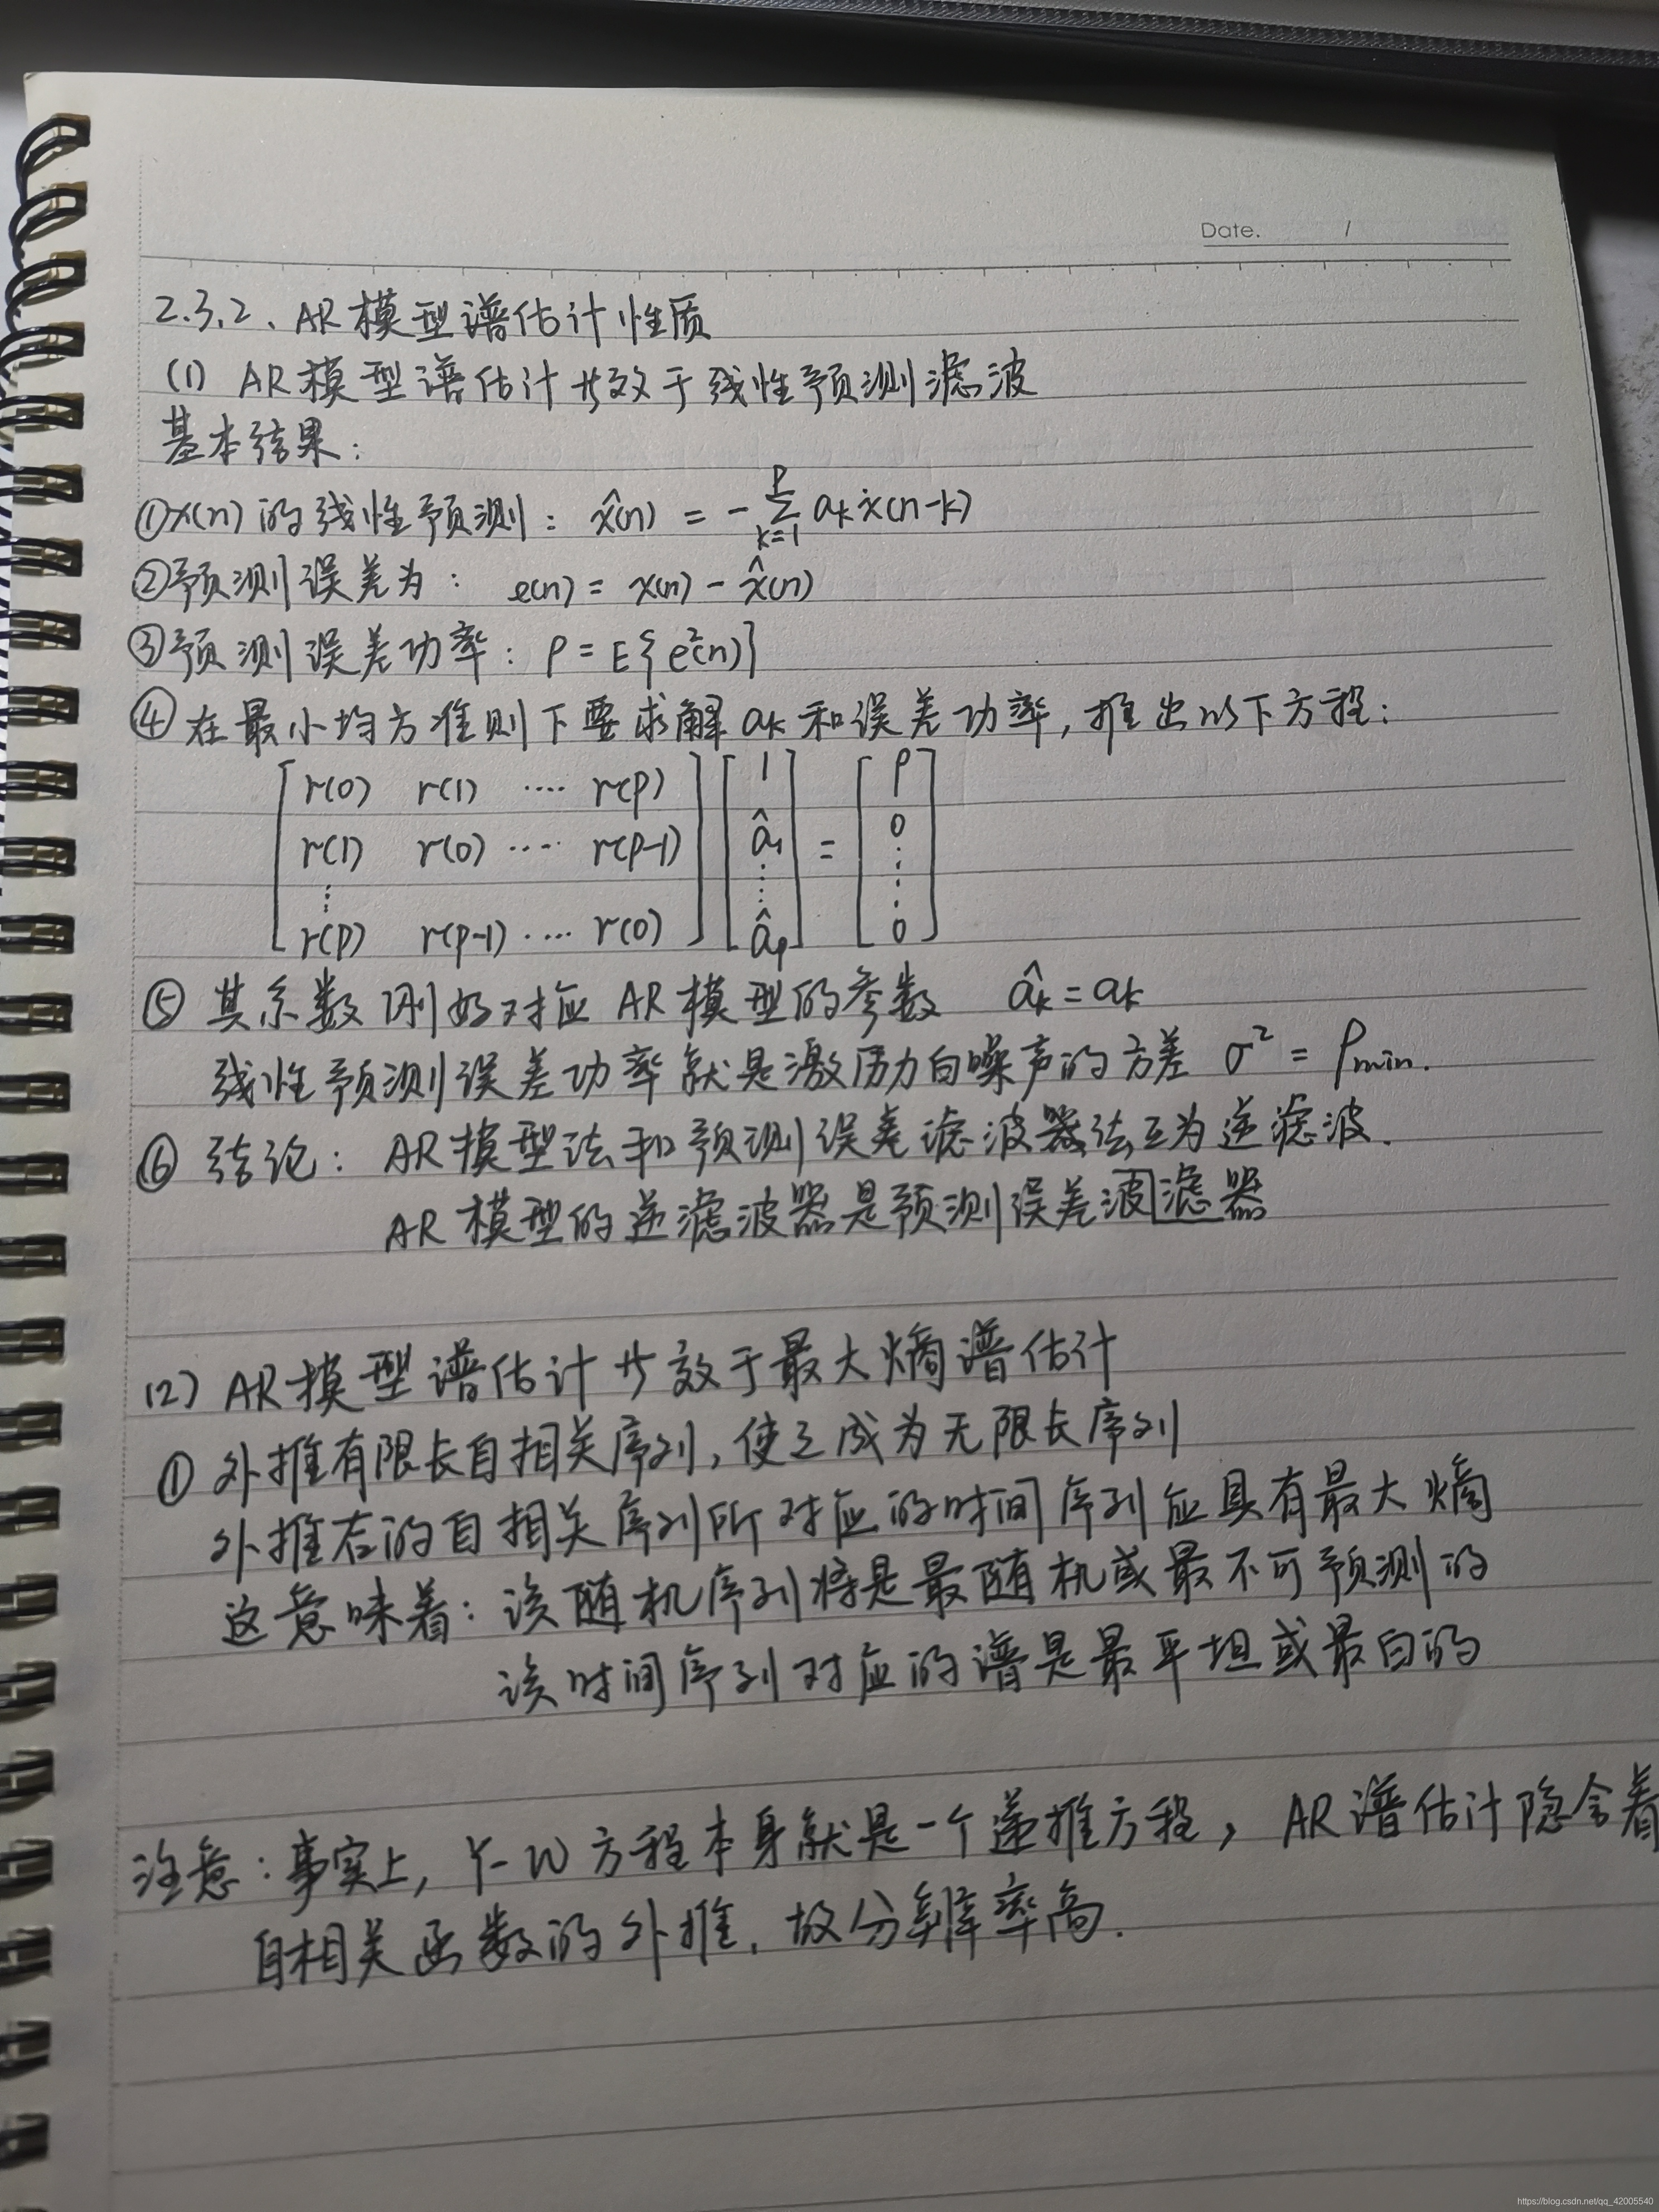 Date. /
2.3.2、AR模型谱估计性质
(1) AR模型谱估计等效于线性预测滤波
基本结果：
①x(n)的线性预测： x̂(n) = -∑_{k=1}^{p} aₖx(n-k)
②预测误差为： e(n) = x(n) - x̂(n)
③预测误差功率：ρ = E{e²(n)}
④在最小均方准则下要求解 aₖ 和误差功率，推出以下方程：
[r(0) r(1) ···· r(p)] [1] [ρ]
[r(1) r(0) ···· r(p-1)] [â₁] = [0]
⋮ ⋮ ⋮
[r(p) r(p-1) ···· r(0)] [âₚ] [0]
⑤ 其系数刚好对应 AR模型的参数 âₖ = aₖ
线性预测误差功率就是激励白噪声的方差 σ² = ρmin.
⑥ 结论：AR模型法和预测误差滤波器法互为逆滤波.
AR模型的逆滤波器是预测误差波滤器
(2) AR模型谱估计等效于最大熵谱估计
① 外推有限长自相关序列，使之成为无限长序列
外推后的自相关序列所对应的时间序列应具有最大熵
这意味着：该随机序列将是最随机或最不可预测的
该时间序列对应的谱是最平坦或最白的
注意：事实上，Y-W方程本身就是一个递推方程，AR谱估计隐含着
自相关函数的外推，故分辨率高.
https://blog.csdn.net/qq_42005540